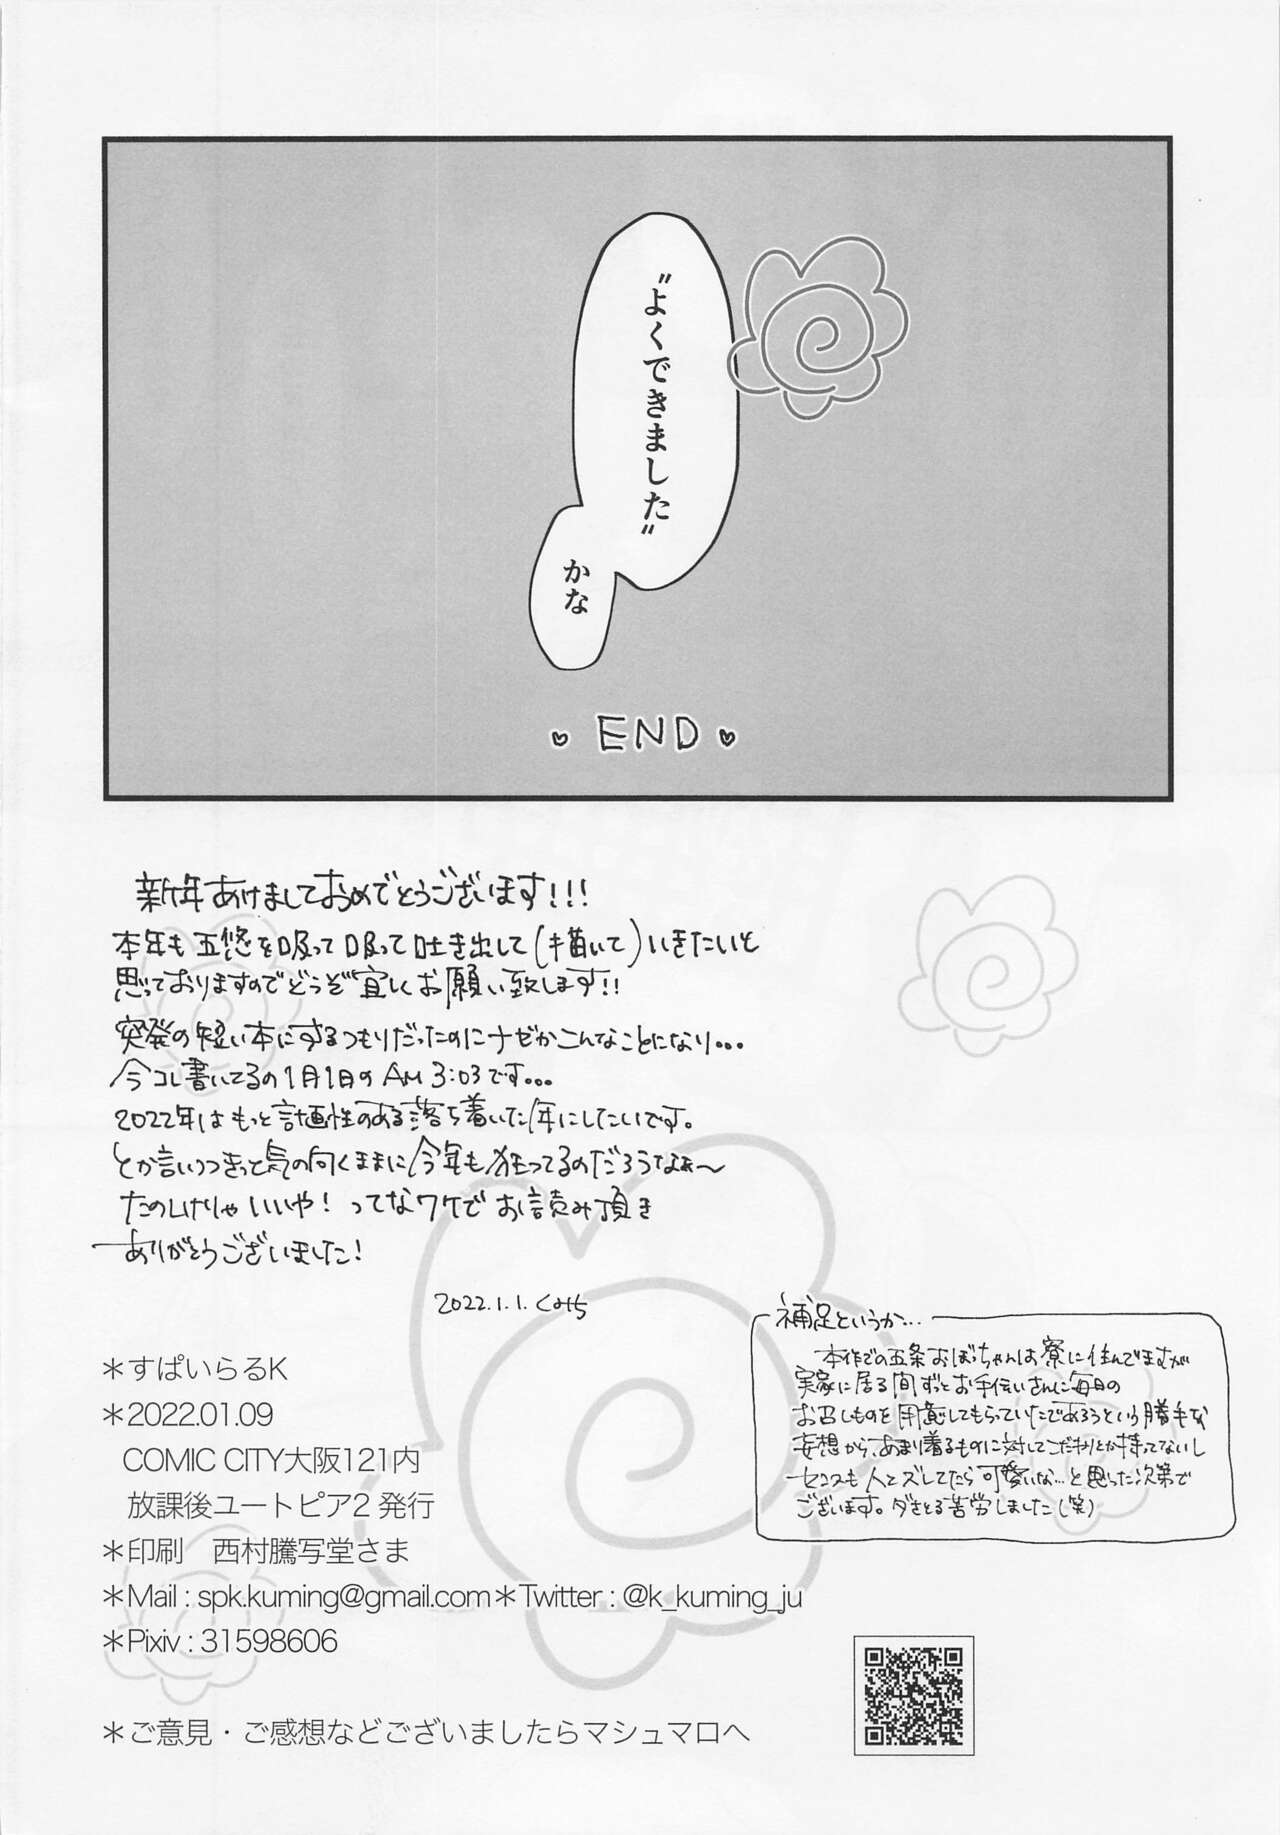 〝よくできました〟
かな
END
新年あけましておめでとうございます!!!
本年も五悠を吸って吸って吐き出して(描いて)いきたいと
思っておりますのでどうぞ宜しくお願い致します!!
突発の短い本にするつもりだったのにナゼかこんなことになり…
今コレ書いてるの1月1日のAM 3:03です…
2022年はもっと計画性のある落ち着いた年にしたいです。
とか言いつつきっと気の向くままに今年も狂ってるのだろうなぁ〜
たのしけりゃいいや! ってなワケでお読み頂き
ありがとうございました!
2022.1.1. くみち
補足というか…
本作での五条おぼっちゃんは寮に住んでますが
実家に居る間ずっとお手伝いさんに毎日の
お召しものを用意してもらっていたであろうという勝手な
妄想から、あまり着るものに対してこだわりとか持ってないし
センスも人とズレてたら可愛いな…と思った次第で
ございます。ダさとる苦労しました(笑)
＊すぱいらるK
＊2022.01.09
COMIC CITY大阪121内
放課後ユートピア2 発行
＊印刷　西村謄写堂さま
＊Mail : spk.kuming@gmail.com＊Twitter : @k_kuming_ju
＊Pixiv : 31598606
＊ご意見・ご感想などございましたらマシュマロへ